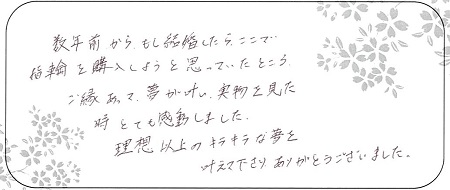 数年前から、もし結婚したら、ここで
指輪を購入しようと思っていたところ、
ご縁あって、夢が叶い、実物を見た
時とても感動しました。
理想以上のキラキラな夢を
叶えて下さりありがとうございました。